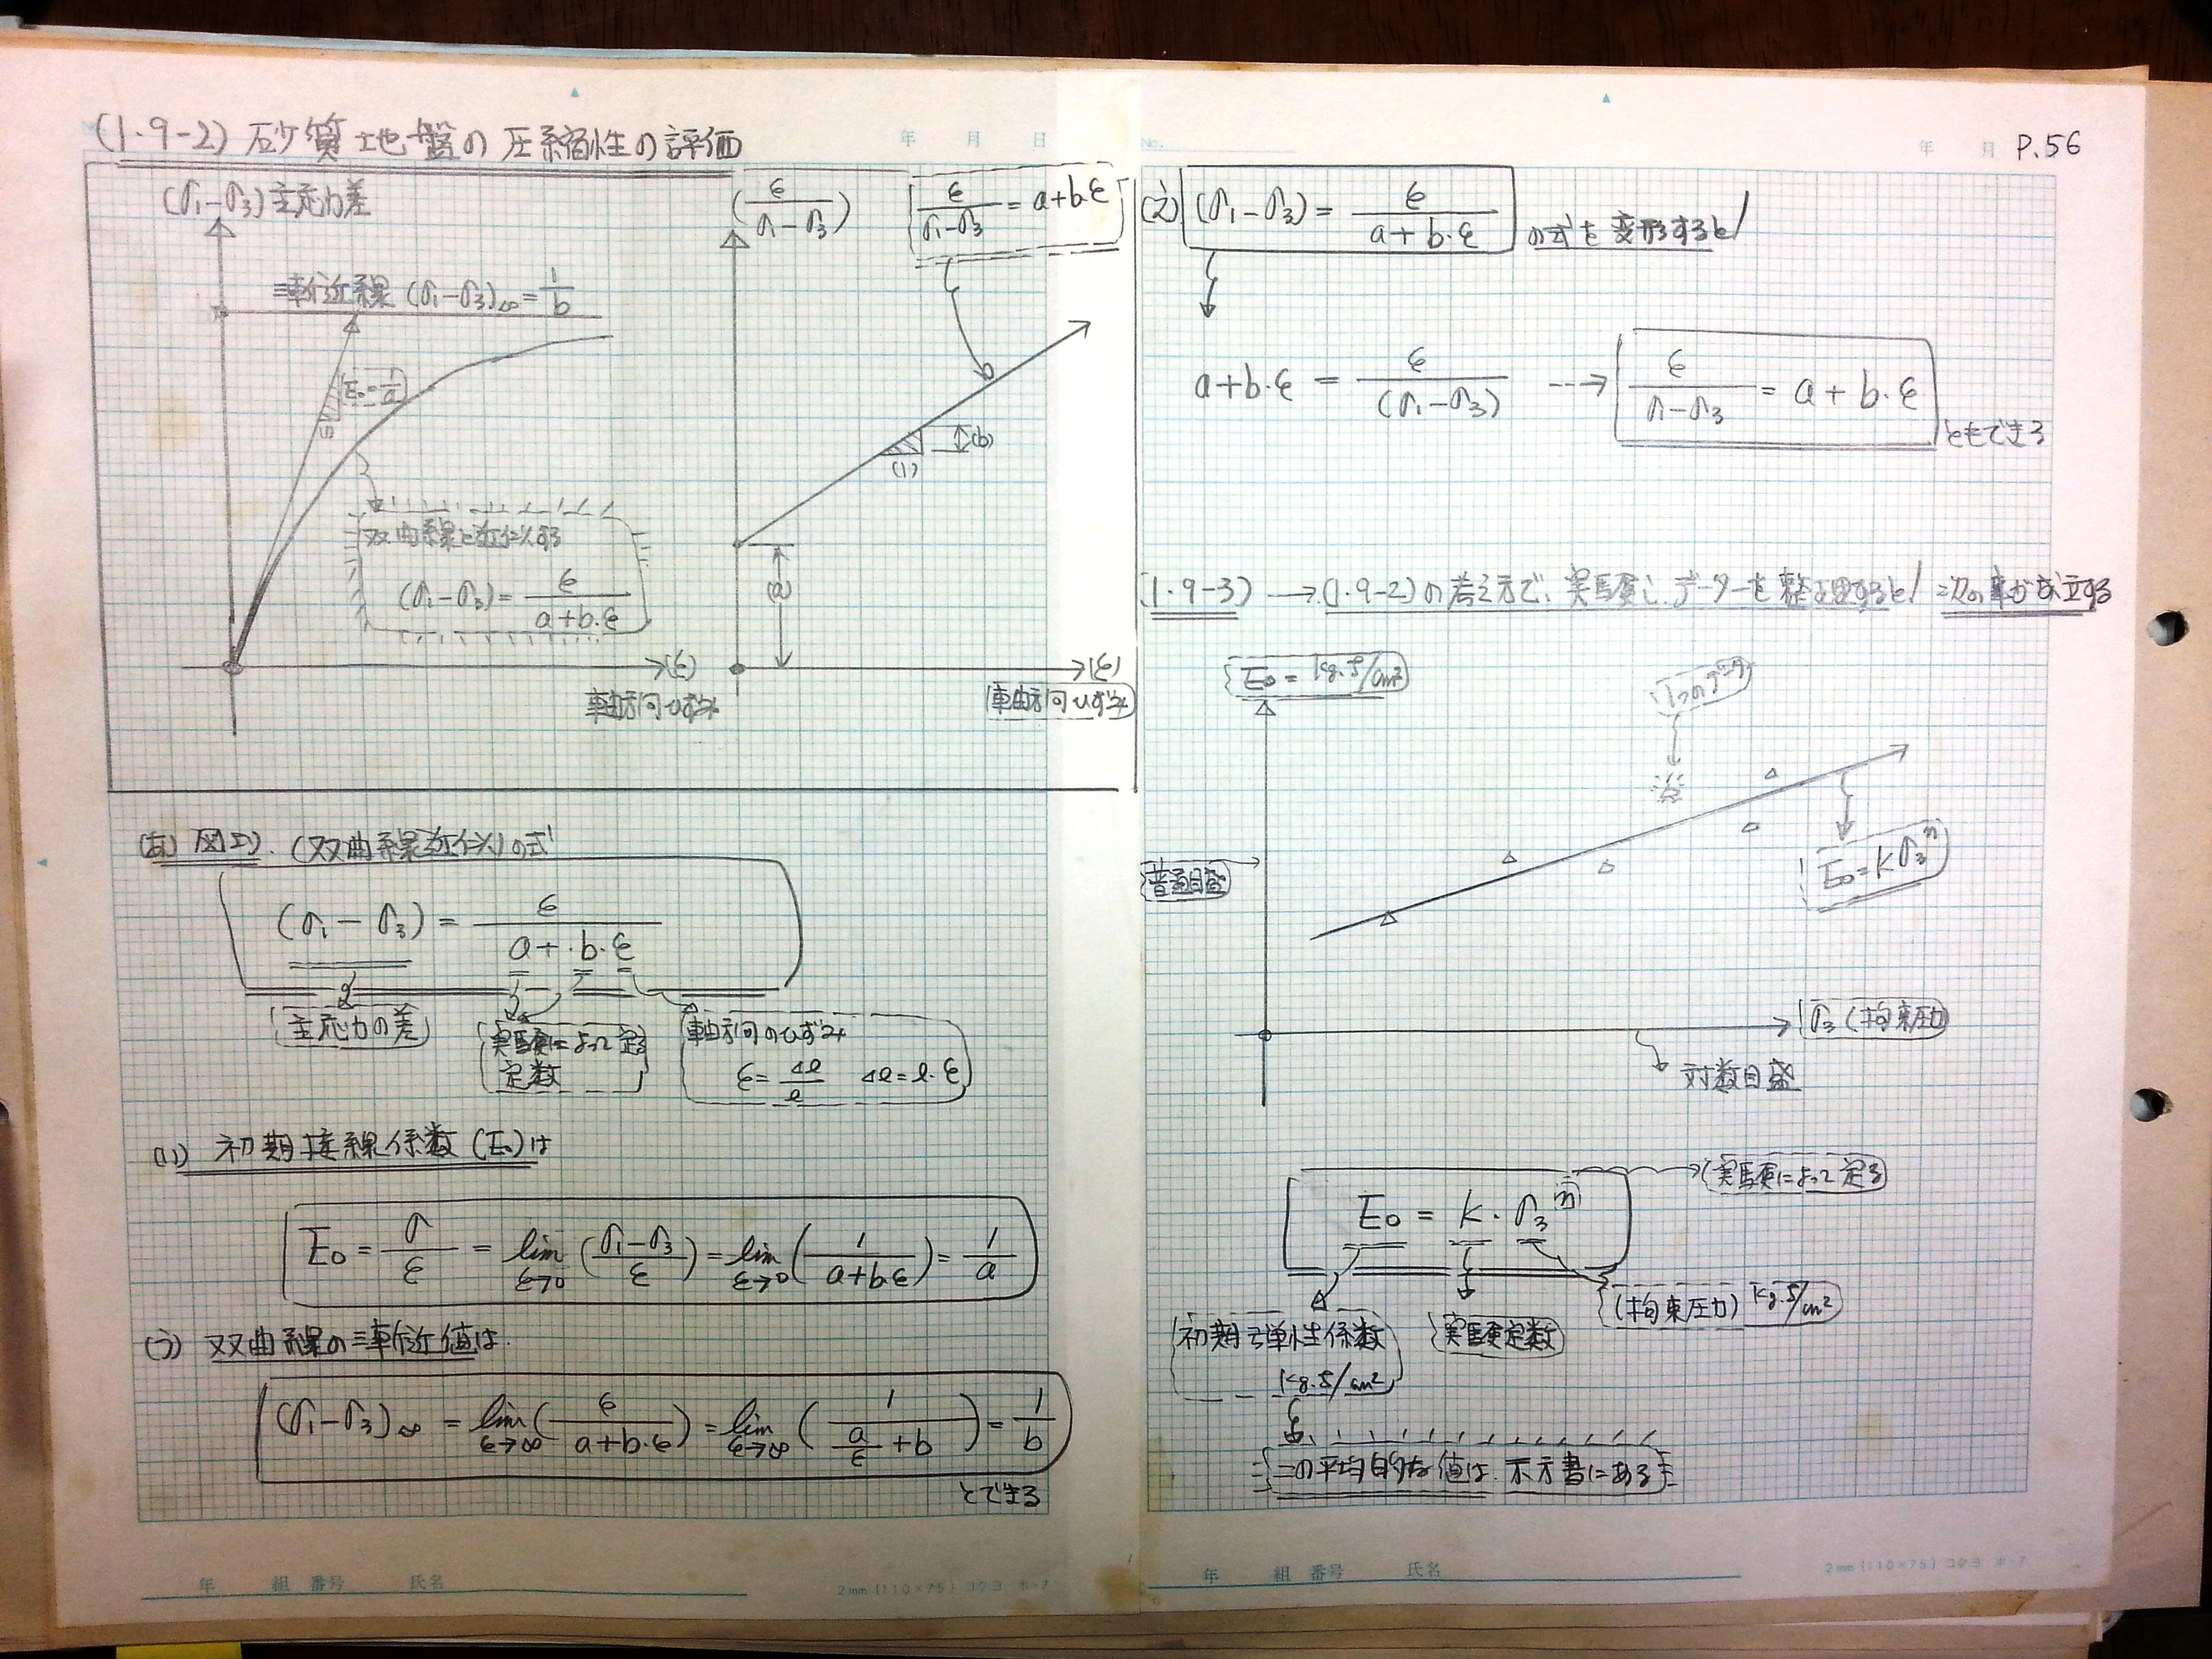 (1・9-2) 砂質地盤の圧縮性の評価
年 月 日
(σ₁-σ₃) 主応力差
漸近線 (σ₁-σ₃)∞ = 1/b
E₀ = 1/a
双曲線と近似する
(σ₁-σ₃) = ε/(a+b・ε)
(ε)
軸方向ひずみ
(ε/(σ₁-σ₃))
ε/(σ₁-σ₃) = a+b・ε
(b)
(1)
(a)
(ε)
軸方向ひずみ
(あ) 図より. (双曲線近似)の式
(σ₁-σ₃) = ε/(a+・b・ε)
主応力の差
実験によって定る
定数
軸方向のひずみ
ε = Δl/l Δl = l・ε
(い) 初期接線係数(E₀)は
E₀ = σ/ε = lim ε→0 ((σ₁-σ₃)/ε) = lim ε→0 (1/(a+bε)) = 1/a
(う) 双曲線の漸近値は.
(σ₁-σ₃)∞ = lim ε→∞ (ε/(a+b・ε)) = lim ε→∞ (1/(a/ε+b)) = 1/b
とできる
年 組 番号 氏名
2mm (110×75) コクヨ ホ-7
No.
年 月
P.56
(え) (σ₁-σ₃) = ε/(a+b・ε) の式を変形すると!
a+b・ε = ε/(σ₁-σ₃) ---→ ε/(σ₁-σ₃) = a+b・ε
ともできる
(1・9-3) →(1・9-2)の考え方で、実験し、データーを整理すると! 次の事が成立する
E₀ = kg.f/cm²
普通目盛
E₀ = Kσ₃ⁿ
σ₃ (拘束圧)
対数目盛
E₀ = K・σ₃ⁿ
実験によって定る
(拘束圧力) kg.f/cm²
初期弾性係数
kg.f/cm²
実験定数
この平均的な値は. 示方書にある
年 組 番号 氏名
2mm (110×75) コクヨ ホ-7